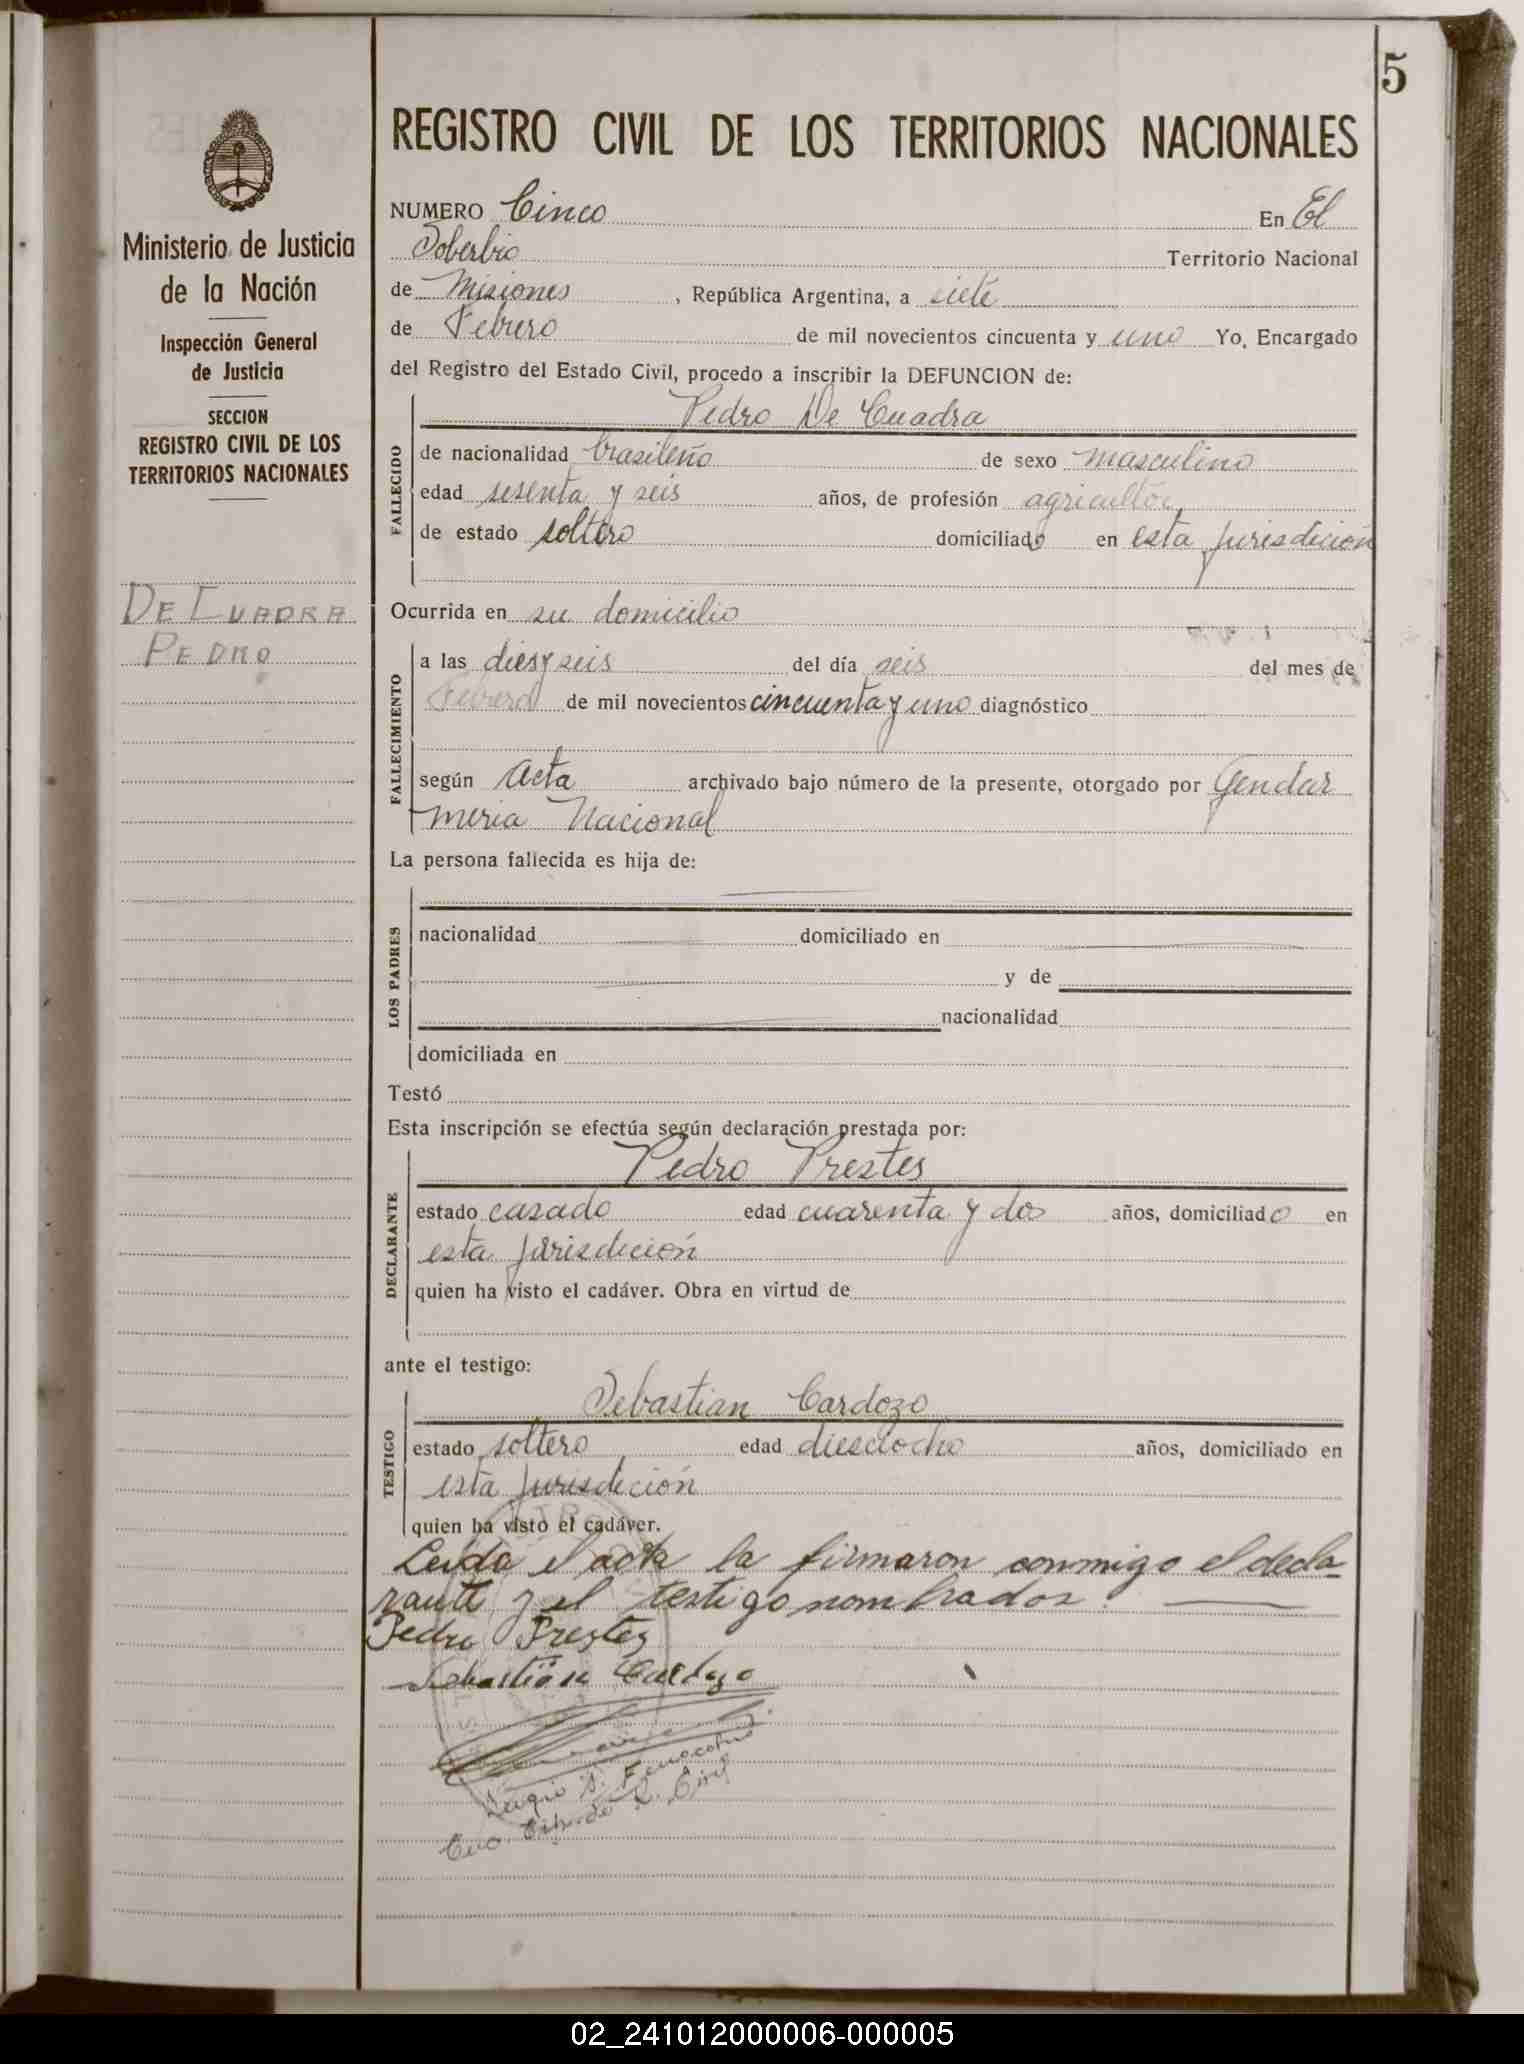 5
REGISTRO CIVIL DE LOS TERRITORIOS NACIONALES
Ministerio de Justicia
de la Nación
Inspección General
de Justicia
SECCION
REGISTRO CIVIL DE LOS
TERRITORIOS NACIONALES
DE CUADRA
PEDRO
NUMERO Cinco En El
Soberbio Territorio Nacional
de Misiones, República Argentina, a siete
de Febrero de mil novecientos cincuenta y uno Yo, Encargado
del Registro del Estado Civil, procedo a inscribir la DEFUNCION de:
FALLECIDO
Pedro De Cuadra
de nacionalidad brasileño de sexo masculino
edad sesenta y seis años, de profesión agricultor
de estado soltero domiciliado en esta jurisdicion
Ocurrida en su domicilio
FALLECIMIENTO
a las diesyseis del día seis del mes de
Febrero de mil novecientos cincuenta y uno diagnóstico
según Acta archivado bajo número de la presente, otorgado por Gendar
meria Nacional
La persona fallecida es hija de:
LOS PADRES
nacionalidad domiciliado en
y de
nacionalidad
domiciliada en
Testó
Esta inscripción se efectúa según declaración prestada por:
DECLARANTE
Pedro Prestes
estado casado edad cuarenta y dos años, domiciliado en
esta jurisdición
quien ha visto el cadáver. Obra en virtud de
ante el testigo:
TESTIGO
Sebastian Cardozo
estado soltero edad diesciocho años, domiciliado en
esta jurisdición
quien ha visto el cadáver.
Leida el acta la firmaron conmigo el decla-
rante y el testigo nombrados.
Pedro Prestes
Sebastián Cardozo
R. Civil
02_241012000006-000005